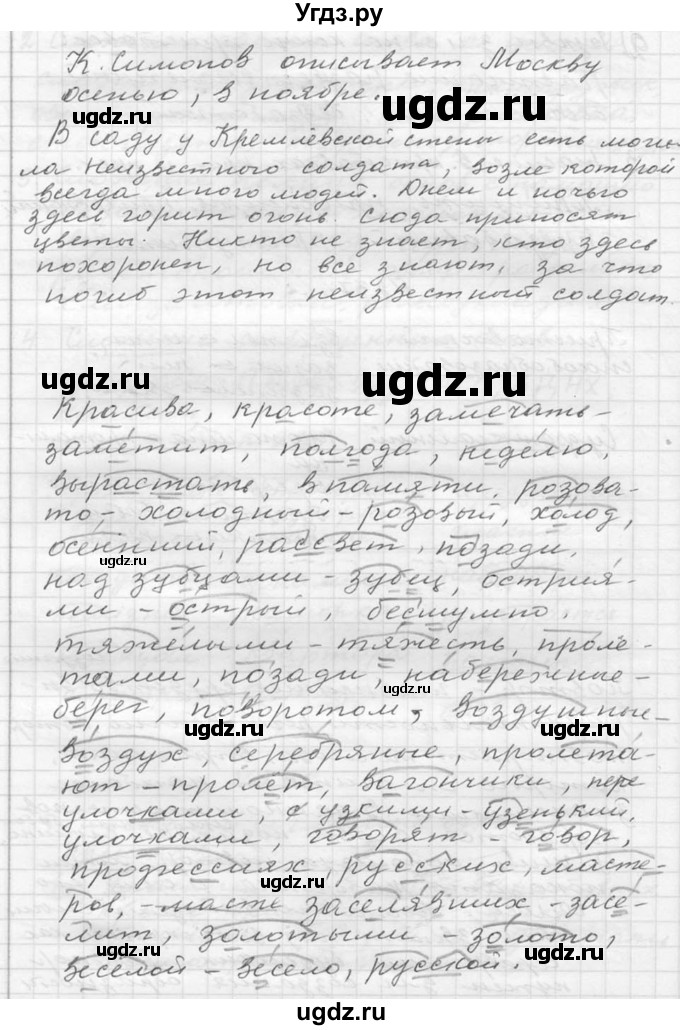 Угдз.ру
К. Симонов описывает Москву
осенью, в ноябре.
ugdz.ru
В саду у Кремлёвской стены есть моги-
ла Неизвестного солдата, возле которой
всегда много людей. Днём и ночью
здесь горит огонь. Сюда приносят
цветы. Никто не знает, кто здесь
похоронен, но все знают, за что
погиб этот неизвестный солдат.
ugdz.ru
ugdz.ru
ugdz.ru
Красива, красоте, замечать-
заметит, полгода, неделю,
вырастать, в памяти, розова-
то-холодный-розовый, холод,
осенний, рассвет, позади,
над зубцами-зубец, острия-
ми-острый, бесшумно,
ugdz.ru
тяжёлыми-тяжесть, проле-
тами, позади, набережные-
ugdz.ru
берег, поворотом, воздушные-
ugdz.ru
ugdz.ru
воздух, серебряные, пролета-
ют-пролёт, вагончики, пере
улочками, с узкими-узенький,
улочками, говорят-говор,
профессиях, русских, масте-
ugdz.ru
ров,-масте заселявших-засе-
лит, золотыми-золото,
весёлой-весело, русской.
ugdz.ru
ugdz.ru
Угдз.ру